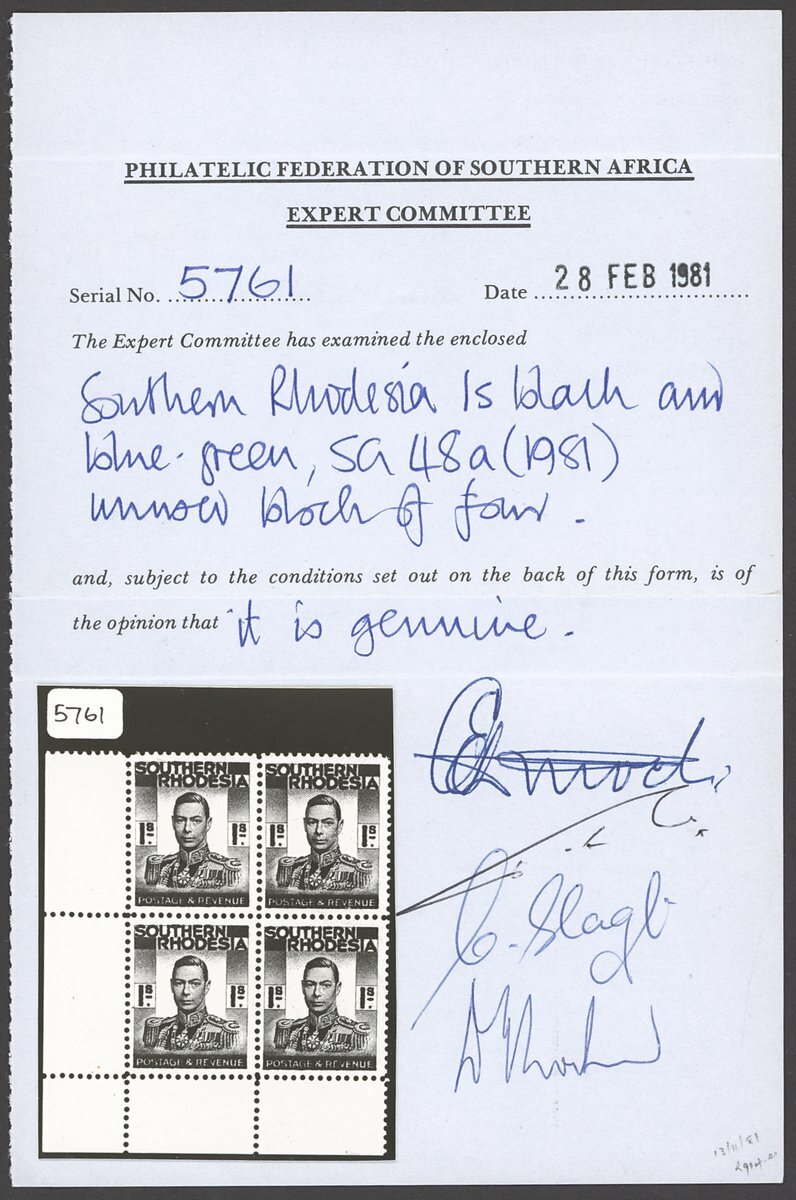 PHILATELIC FEDERATION OF SOUTHERN AFRICA
EXPERT COMMITTEE
Serial No. 5761
Date 28 FEB 1981
The Expert Committee has examined the enclosed
Southern Rhodesia 1s black and
blue-green, SG 48a (1981)
unused block of four.
and, subject to the conditions set out on the back of this form, is of
the opinion that it is genuine.
5761
SOUTHERN RHODESIA
1s.
1s.
POSTAGE & REVENUE
SOUTHERN RHODESIA
1s.
1s.
POSTAGE & REVENUE
SOUTHERN RHODESIA
1s.
1s.
POSTAGE & REVENUE
SOUTHERN RHODESIA
1s.
1s.
POSTAGE & REVENUE
13/11/81